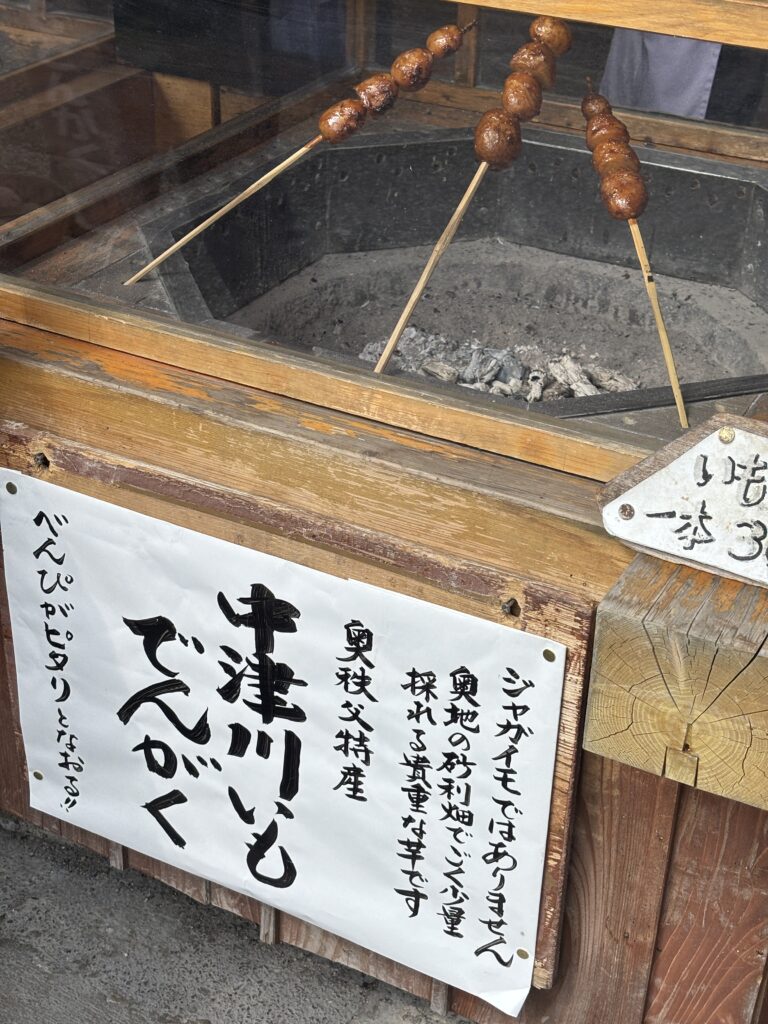 ジャガイモではありません
奥地の砂利畑でごく少量
採れる貴重な芋です
奥秩父特産
中津川いも
でんがく
べんぴがピタリとなおる!!
一本 3